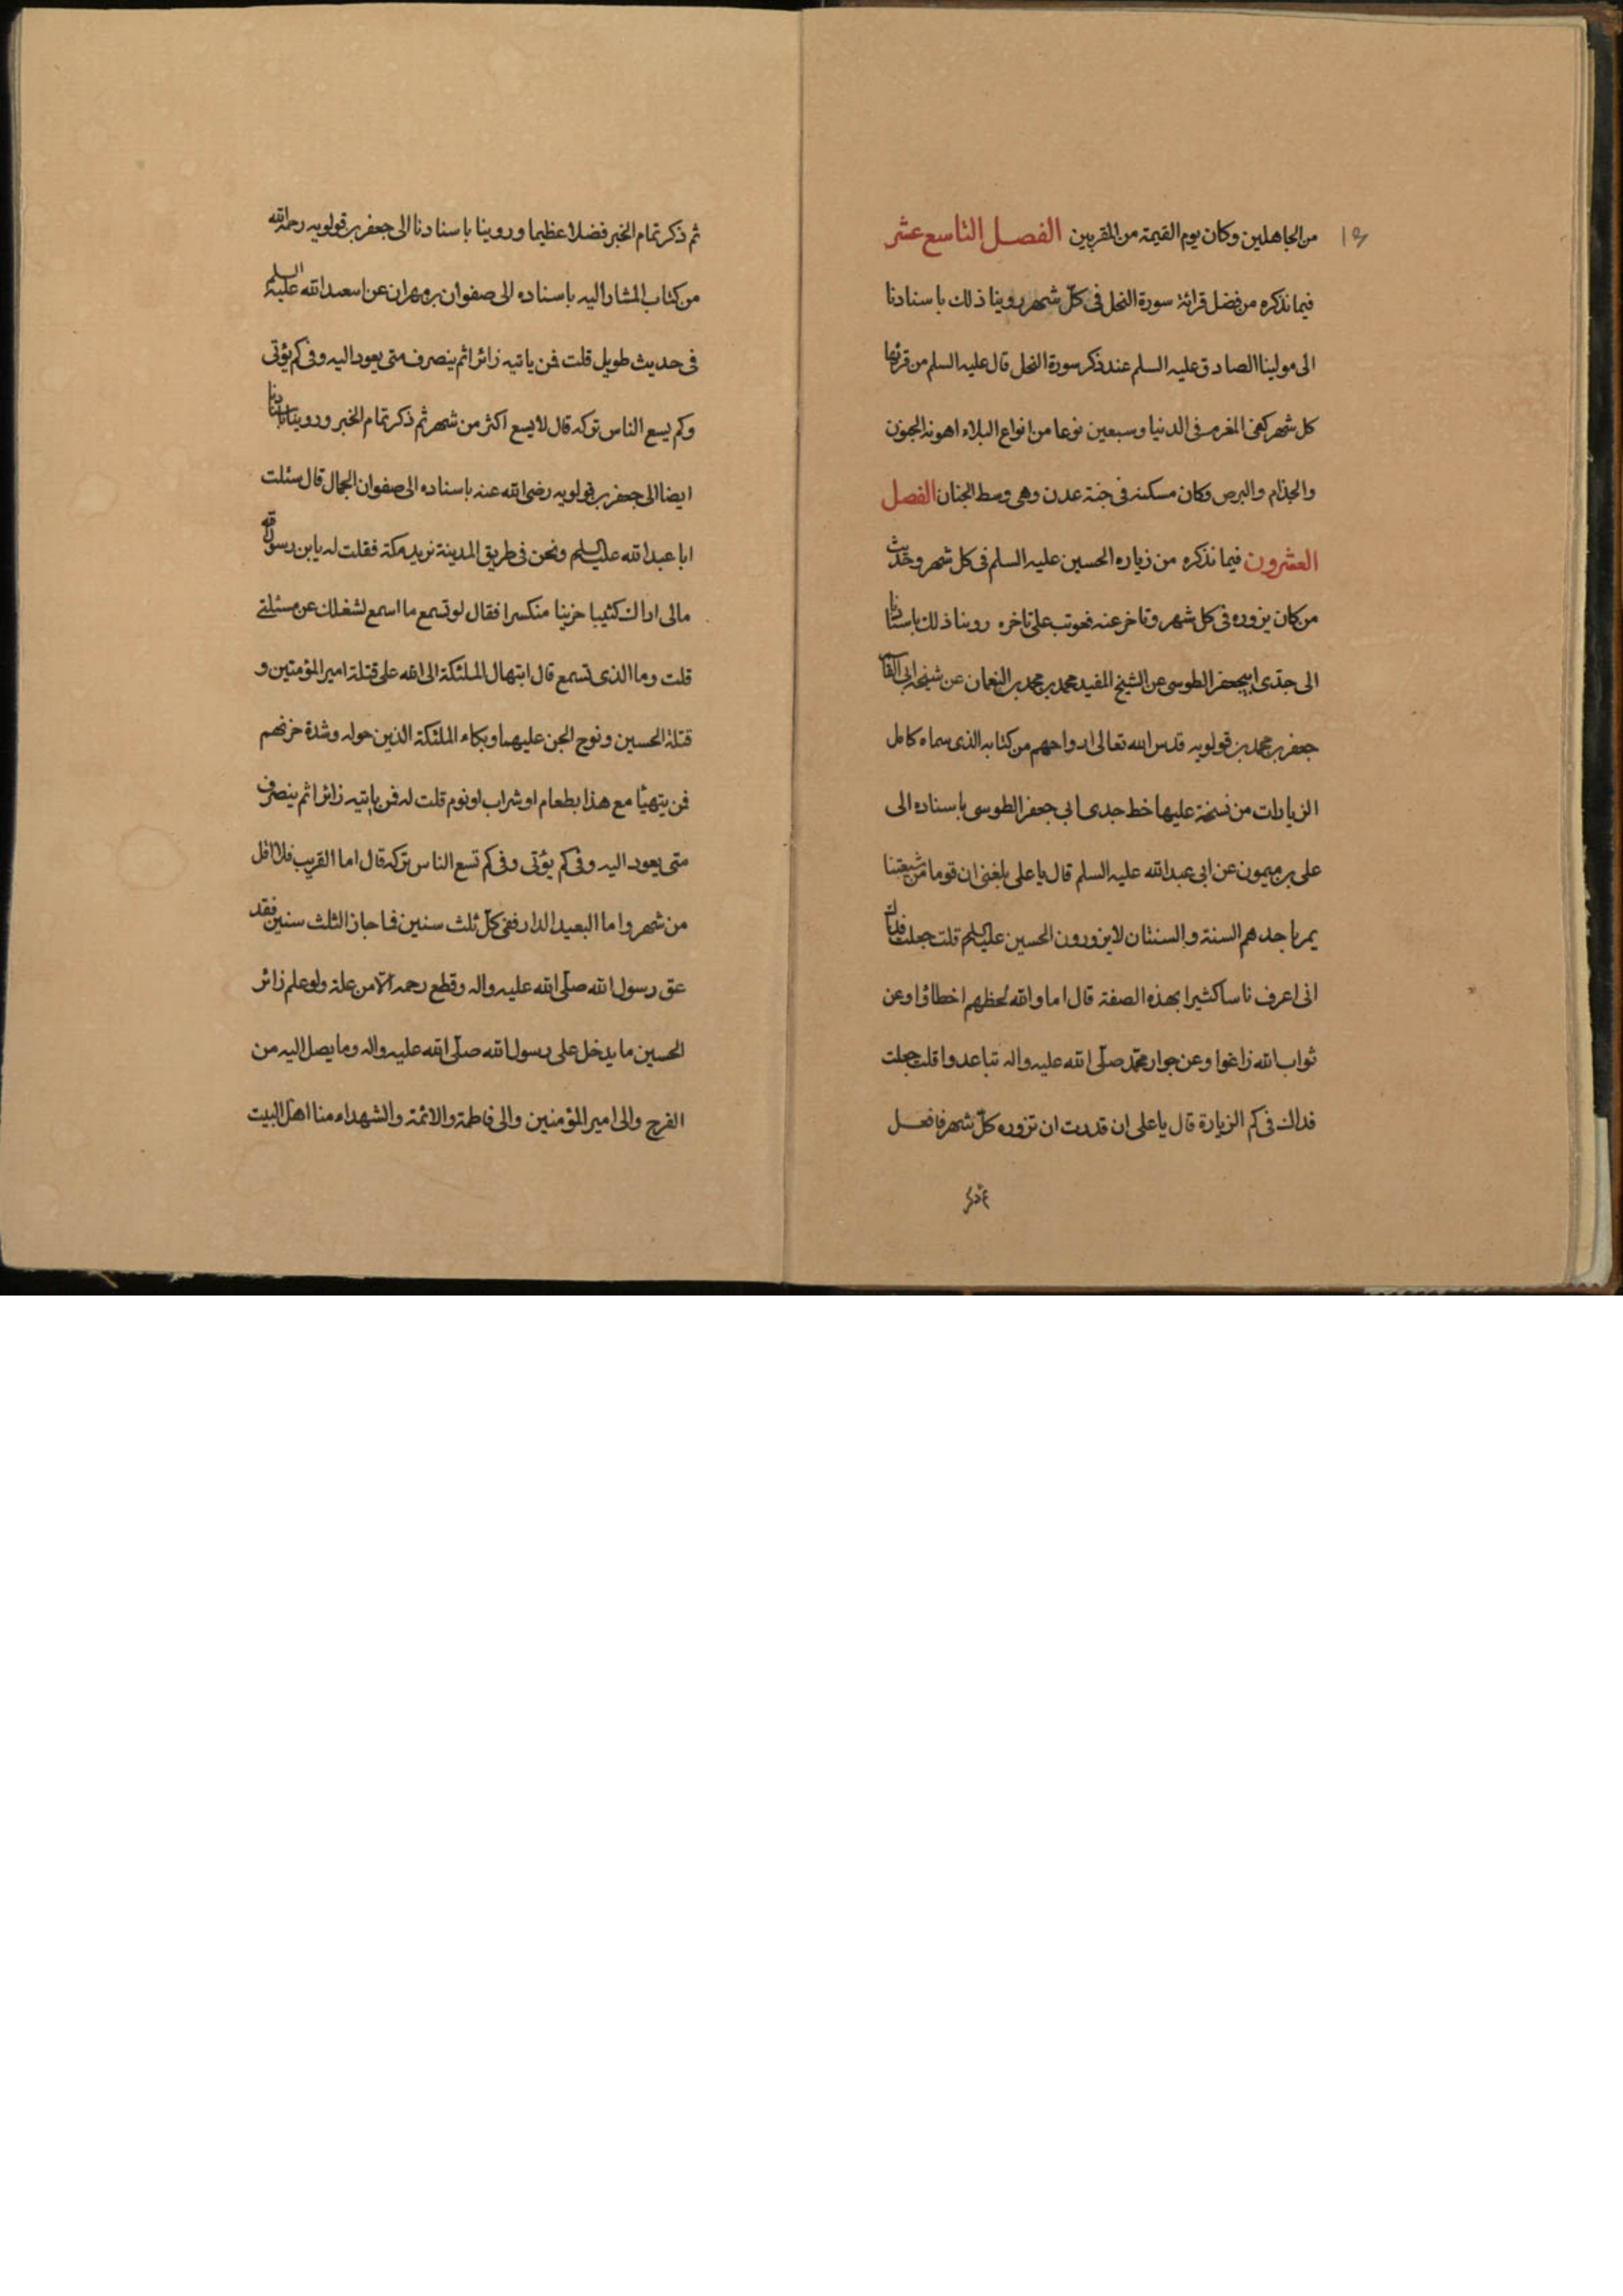 من الجاهلين وكان يوم القيمة من المقربين الفصل التاسع عشر
فيما نذكره من فضل قرائة سورة النحل فى كلّ شهر روينا ذلك باسنادنا
الى مولينا الصادق عليه السلم عند ذكر سورة النحل قال عليه السلم من قرئها
كل شهر كفى المغرم فى الدنيا وسبعين نوعا من انواع البلاء اهونه الجنون
والجذام والبرص وكان مسكنه فى جنة عدن وهى وسط الجنان الفصل
العشرون فيما نذكره من زياره الحسين عليه السلم فى كل شهر وحديث
من كان يزوره فى كل شهر وتاخر عنه فعوتب على تاخره روينا ذلك باسنادنا
الى جدّى ابيجعفر الطوسى عن الشيخ المفيد محمد بن محمد بن النعمان عن شيخه ابى القا
جعفر بن محمد بن قولويه قدس الله تعالى ارواحهم من كتابه الذى سماه كامل
الزيارات من نسخة عليها خط جدى ابي جعفر الطوسى باسناده الى
على بن ميمون عن ابى عبدالله عليه السلم قال يا على بلغنى ان قوما من شيعتنا
يمر باحدهم السنة والسنتان لا يزورون الحسين عليه السلم قلت جعلت فداك
انى اعرف ناسا كثيرا بهذه الصفة قال اما والله لحظهم اخطاؤا وعن
ثواب الله زاغوا وعن جوار محمّد صلّى الله عليه واله تباعدوا قلت جعلت
فداك فى كم الزيارة قال يا على ان قدرت ان تزوره كلّ شهر فافعل
ثم ذكر
ثم ذكر تمام الخبر فضلا عظيما وروينا باسنادنا الى جعفر بن قولويه رحمه الله
من كتاب المشار اليه باسناده الى صفوان بن مهران عن ا سعبدالله عليه السلم
فى حديث طويل قلت فمن ياتيه زائرا ثم ينصرف متى يعود اليه وفى كم يؤتى
وكم يسع الناس تركه قال لا يسع اكثر من شهر ثم ذكر تمام الخبر وروينا باسنادنا
ايضا الى جعفر بن قولويه رضى الله عنه باسناده الى صفوان الجمال قال سئلت
ابا عبدالله عليه السلم ونحن فى طريق المدينة نريد مكة فقلت له يابن رسول الله
مالى اراك كئيبا حزينا منكسرا فقال لو تسمع ما اسمع لشغلك عن مسئلتى
قلت وما الذى تسمع قال ابتهال الملئكة الى الله على قتلة امير المؤمنين و
قتلة الحسين ونوح الجن عليهما وبكاء الملئكة الذين حوله وشدة حزنهم
فمن يتهيّا مع هذا بطعام او شراب او نوم قلت له فمن ياتيه زائرا ثم ينصرف
متى يعود اليه وفى كم يؤتى وفى كم تسع الناس تركه قال اما القريب فلا اقل
من شهر واما البعيد الدار ففى كلّ ثلث سنين فما جاز الثلث سنين فقد
عق رسول الله صلّى الله عليه واله وقطع رحمه الّا من علة ولو علم زائر
الحسين ما يدخل على رسول الله صلّى الله عليه واله وما يصل اليه من
الفرح والى امير المؤمنين والى فاطمة والائمة والشهداء منا اهل البيت